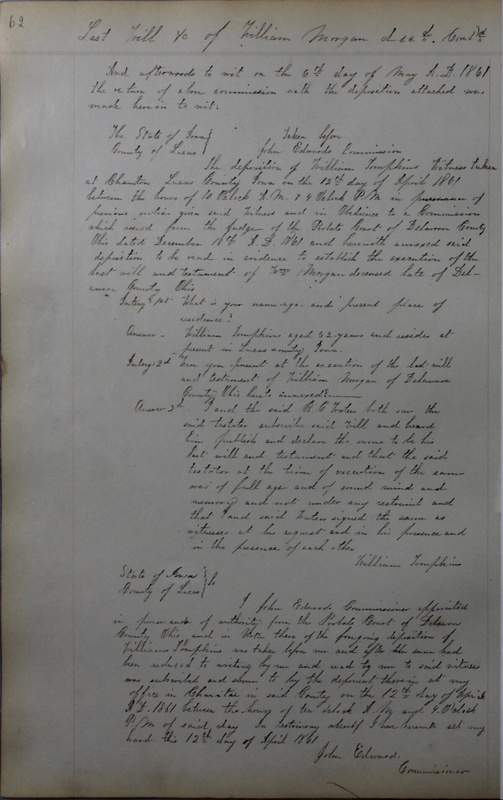 62
Last Will &c of William Morgan decd. Contd
And afterwards to wit on the 6th day of May A.D. 1861
the return of above commission with the deposition attached was
made herein to wit.
The State of Iowa } Taken before
County of Lucas } John Edwards Commission
The deposition of William Tompkins Witness taken
at Chariton Lucas County Iowa on the 12th day of April 1861
between the hours of 10 Oclock A.M. & 4 Oclock P.M in pursuance of
previous notice given said Witness and in Obedience to a Commission
which issued from the Judge of the Probate Court of Delaware County
Ohio dated December 18th A.D. 1861 and herewith annexed said
deposition to be read in evidence to establish the execution of the
last will and testament of Wm Morgan deceased late of Del-
aware County Ohio
Interg 1st What is your name age and present place of
residence?
Answer - William Tompkins aged 62 years and resides at
present in Lucas County Iowa.
Interg 2d Were you present at the execution of the last will
and testament of William Morgan of Delaware
County Ohio hereto annexed?
Answer 3d I and the said both saw the
said testator subscribe said Will and heard
him publish and declare the same to be his
last will and testament and that the said
testator at the time of execution of the same
was of full age and of sound mind and
memory and not under any restraint and
that I and said signed the same as
witnesses at his request and in his presence and
in the presence of each other
William Tompkins
State of Iowa }
County of Lucas }
I John Edwards Commissioner appointed
in pursuance of authority from the Probate Court of Delaware
County Ohio and in the foregoing deposition of
William Tompkins was taken before me and after the same had
been reduced to writing by me and read by me to said witness
was subscribed and sworn to by the deponent therein at my
office in Chariton in said County on the 12th day of April
A.D. 1861 between the hours of ten oclock A.M and 4 Oclock
P.M of said day In testimony whereof I have hereunto set my
hand this 12th day of April 1861
John Edwards.
Commissioner